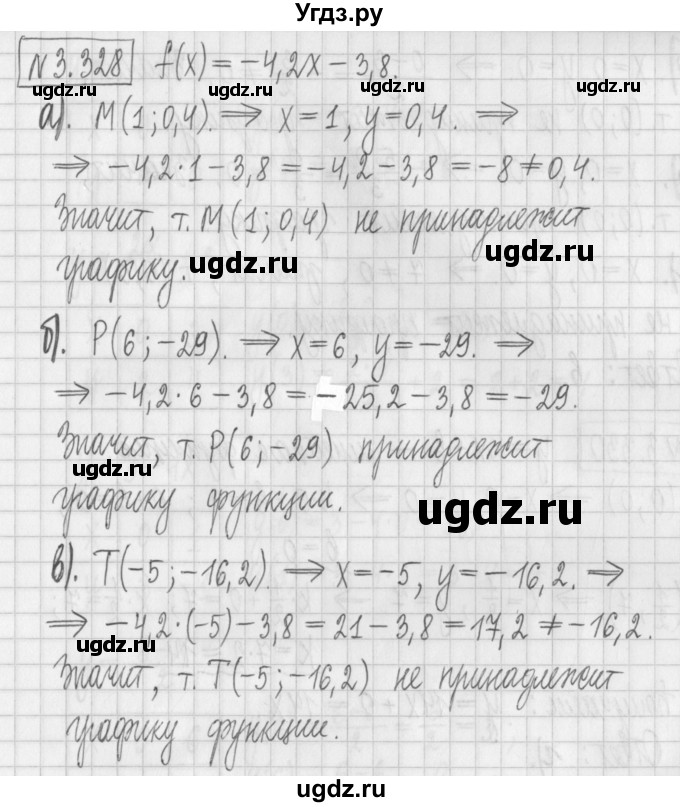 Угдз.ру
№3.328 f(x)=-4,2x-3,8.
ugdz.ru ugdz.ru ugdz.ru
а). M(1;0,4). ⟹ x=1, y=0,4. ⟹
⟹ -4,2·1-3,8=-4,2-3,8=-8≠0,4.
Значит, т. M(1;0,4) не принадлежит
графику. ugdz.ru ugdz.ru
б). P(6;-29). ⟹ x=6, y=-29. ⟹
⟹ -4,2·6-3,8=-25,2-3,8=-29.
Значит, т. P(6;-29) принадлежит
ugdz.ru
графику функции. ugdz.ru
в). T(-5;-16,2) ⟹ x=-5, y=-16,2. ⟹
⟹ -4,2·(-5)-3,8=21-3,8=17,2≠-16,2.
ugdz.ru
Значит, т. T(-5;-16,2) не принадлежит
графику функции.
ugdz.ru